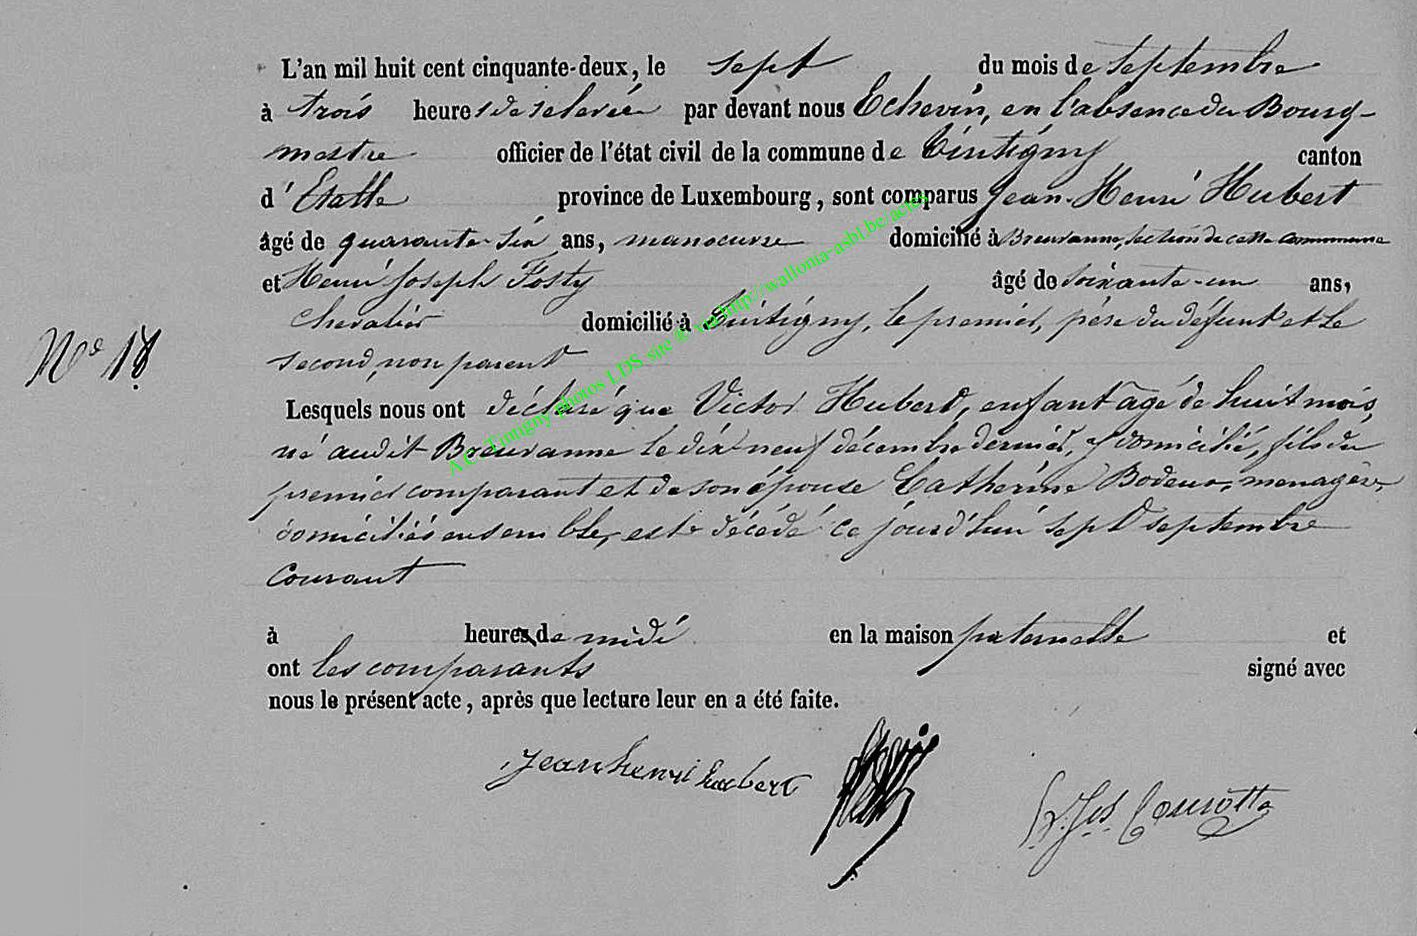 L'an mil huit cent cinquante-deux, le sept du mois de Septembre
à trois heures de relevée par devant nous Echevin, en l'absence du Bourg-
mestre officier de l'état civil de la commune de Tintigny canton
d'Etalle province de Luxembourg, sont comparus Jean-Henri Hubert
âgé de quarante-six ans, manoeuvre domicilié à Breuvanne, section de cette commune
et Henri Joseph Fosty âgé de soixante-un ans,
chevalier domicilié à Tintigny, le premier, père du défunt et le
second, non parent
N° 18
Lesquels nous ont déclaré que Victor Hubert, enfant âgé de huit mois,
né audit Breuvanne le dix neuf décembre dernier, y domicilié, fils du
premier comparant et de son épouse Catherine Bodeux, menagère,
domiciliés ensemble, est décédé ce jourd'hui sept septembre
courant
à heures de midi en la maison paternelle et
ont les comparants signé avec
nous le présent acte, après que lecture leur en a été faite.
Jean henri hubert
A.C. Tintigny photos LDS site http://wallonia-asbl.be/actes